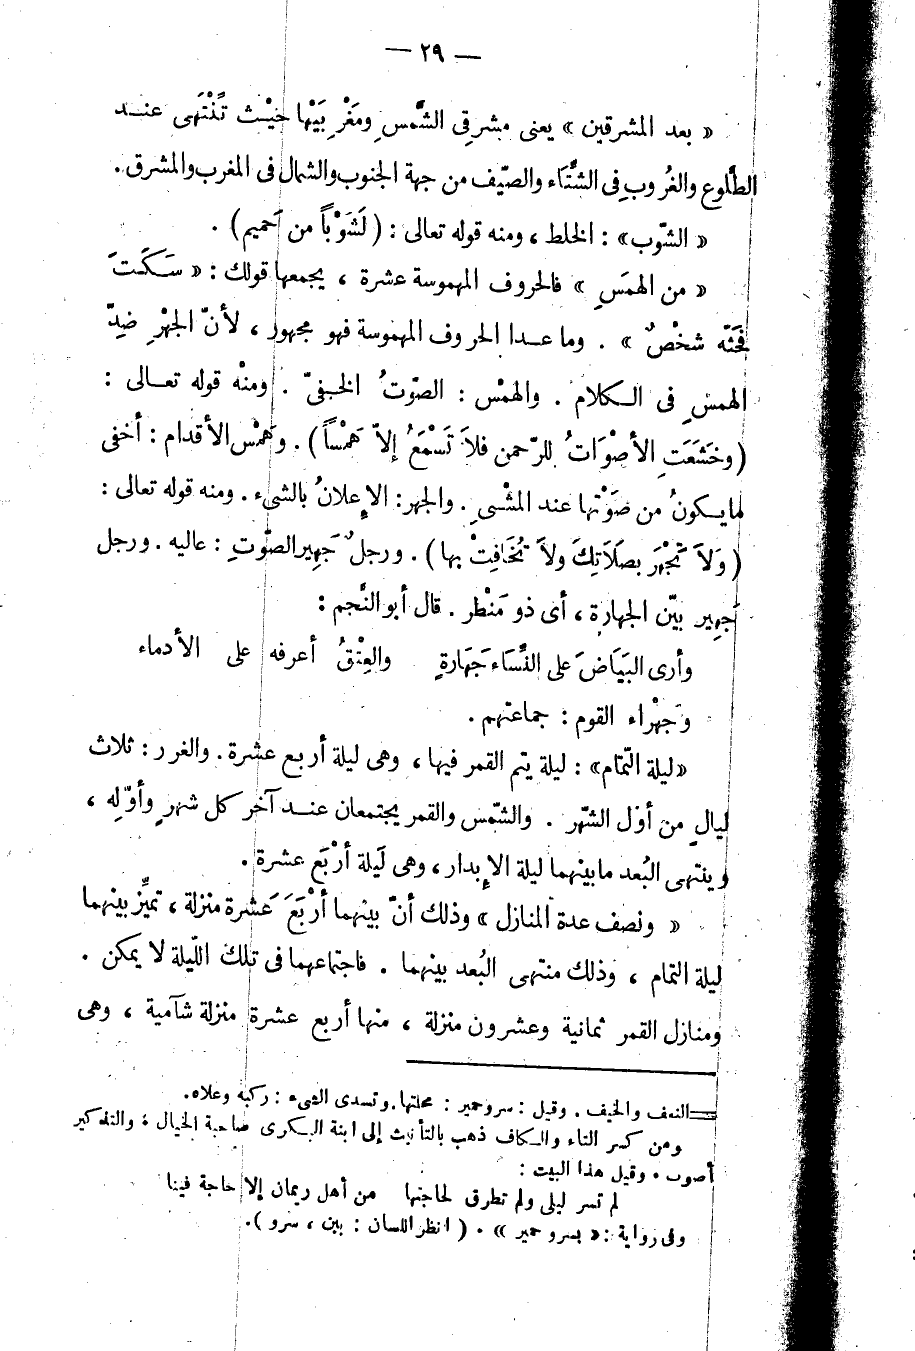 — ٢٩ —
« بعد المشرقين » يعنى مشرقِى الشَّمسِ ومَغْرِبَيْها حَيْث تَنْتَهى عند
الطُّلوع والغُروبِ فى الشِّتَاء والصيّف من جهة الجنوب والشمال فى المغرب والمشرق .
« الشوّب » : الخلط ، ومنه قوله تعالى : ( لَشَوْباً من حَميم ) .
« من الهمَسِ » فالحروف المهموسة عشرة ، يجمعها قولك : « سَكَتَ
فَحَثّه شخْصٌ » . وما عدا الحروف المهموسة فهو مجهور ، لأنّ الجهْرِ ضِدّ
الهمسِ فى الكلام . والهمْس : الصوّتُ الخفىّ . ومنْه قوله تعالى :
( وخَشَعَتِ الأصْوَاتُ للرّحمن فلاَ تَسْمَعُ إلاّ هَمْساً ) . وهَمْس الأقدام : أخفى
ما يكونُ من صَوْتها عند المشْىِ . والجهر : الإعلانُ بالشىء . ومنه قوله تعالى :
( وَلاَ تَجْهَرَ بصَلَاتِكَ ولاَ تُخَافِتْ بها ) . ورجلٌ جَهِير الصّوتِ : عاليه . ورجل
جَهِير بيّن الجهارة ، أى ذو مَنْظر . قال أبو النَّجم :
وأرى البَيَاضَ على النِّسَاء جَهَارةٍ والعِتْقُ أعرفه على الأدماء
وَجهْراء القوم : جماعتهم .
« ليلة التّمام » : ليلة يتم القمر فيها ، وهى ليلة أربع عشرة . والغرر : ثلاث
ليالٍ من أوّل الشهّر . والشمّس والقمر يجتمعان عند آخر كل شهرٍ وأوّله ،
وينتهى البُعد ما بينهما ليلة الإبدار ، وهى لَيلة أرْبَع عشرة .
« ونصف عدة المنازل » وذلك أنّ بينهما أرْبَعَ عَشرة منزلة ، تميِّز بينهما
ليلة التمام ، وذلك منتهى البُعد بينهما . فاجتماعهما فى تلك اللّيلة لا يمكن .
ومنازل القمر ثمانية وعشرون منزلة ، منها أربع عشرة منزلة شآمية ، وهى
= النعف والخيف . وقيل : سرو حمير : محلتها . وتسدى الشىء : ركبه وعلاه .
ومن كسر التاء والكاف ذهب بالتأنيث إلى ابنة البكرى صاحبة الخيال ؛ والتذكير
أصوب . وقيل هذا البيت :
لم تسر ليلى ولم تطرق لحاجتها من أهل ريمان إلا حاجة فينا
وفى رواية : « بسرو حمير » . ( انظر اللسان : بين ، سرو ) .